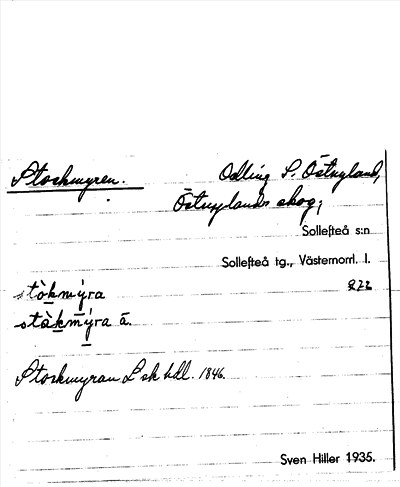 Stockmyren. Odling S. Östnyland,
Östnylands skog;
Sollefteå s:n
Sollefteå tg., Västernorrl. l.
stòkmýra 222
stàkmýra ā.
Stockmyran L sk hdl. 1846.
Sven Hiller 1935.